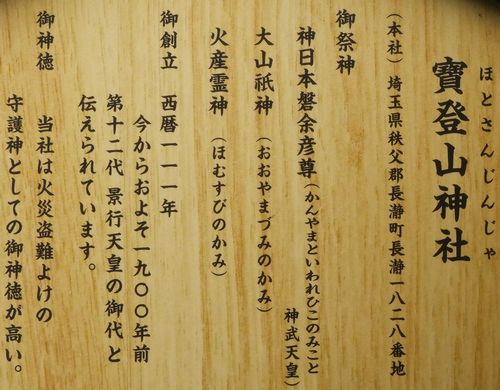 ほとさんじんじゃ
寶登山神社
(本社) 埼玉県秩父郡長瀞町長瀞一八二八番地
御祭神
神日本磐余彦尊(かんやまといわれひこのみこと
神武天皇)
大山祇神 (おおやまづみのかみ)
火産霊神 (ほむすびのかみ)
御創立 西暦一一一年
今からおよそ一九〇〇年前
第十二代 景行天皇の御代と
伝えられています。
御神徳
当社は火災盗難よけの
守護神としての御神徳が高い。